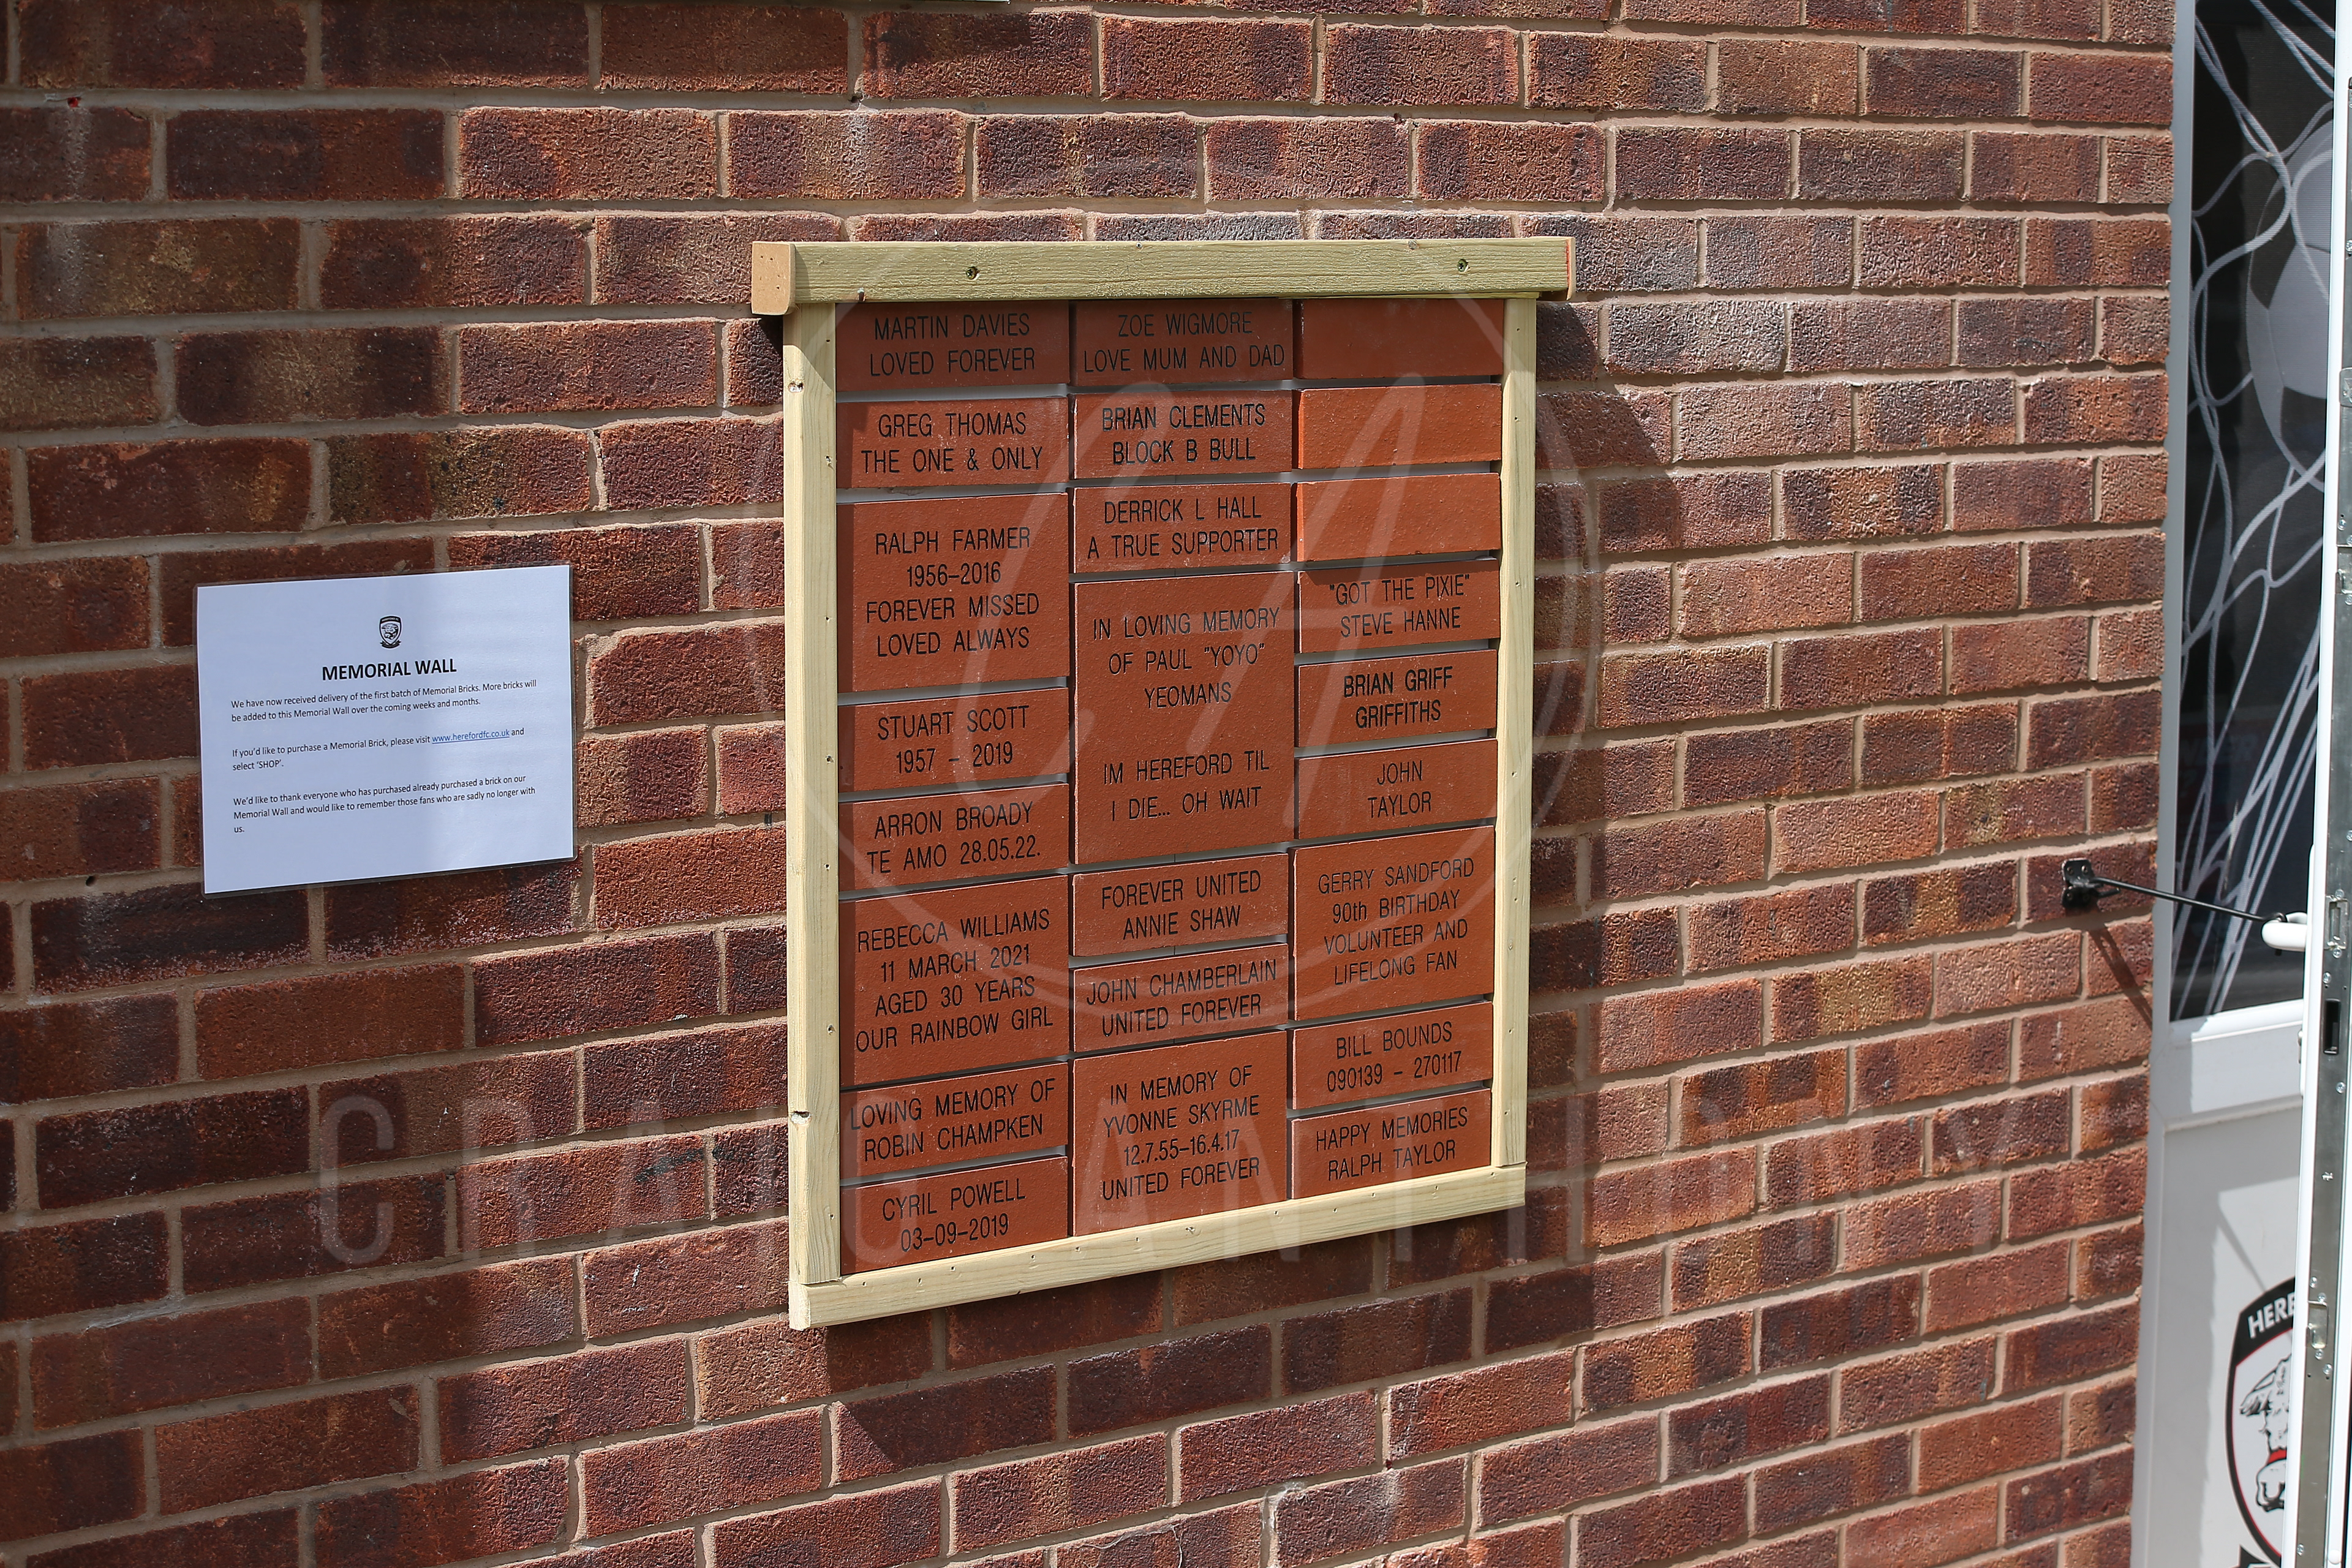 MEMORIAL WALL
We have now received delivery of the first batch of Memorial Bricks. More bricks will
be added to this Memorial Wall over the coming weeks and months.
If you'd like to purchase a Memorial Brick, please visit www.herefordfc.co.uk and
select 'SHOP'.
We'd like to thank everyone who has purchased already purchased a brick on our
Memorial Wall and would like to remember those fans who are sadly no longer with
us.
MARTIN DAVIES
LOVED FOREVER
GREG THOMAS
THE ONE & ONLY
RALPH FARMER
1956-2016
FOREVER MISSED
LOVED ALWAYS
STUART SCOTT
1957 - 2019
ARRON BROADY
TE AMO 28.05.22.
REBECCA WILLIAMS
11 MARCH 2021
AGED 30 YEARS
OUR RAINBOW GIRL
LOVING MEMORY OF
ROBIN CHAMPKEN
CYRIL POWELL
03-09-2019
ZOE WIGMORE
LOVE MUM AND DAD
BRIAN CLEMENTS
BLOCK B BULL
DERRICK L HALL
A TRUE SUPPORTER
IN LOVING MEMORY
OF PAUL "YOYO"
YEOMANS
IM HEREFORD TIL
I DIE... OH WAIT
FOREVER UNITED
ANNIE SHAW
JOHN CHAMBERLAIN
UNITED FOREVER
IN MEMORY OF
YVONNE SKYRME
12.7.55-16.4.17
UNITED FOREVER
"GOT THE PIXIE"
STEVE HANNE
BRIAN GRIFF
GRIFFITHS
JOHN
TAYLOR
GERRY SANDFORD
90th BIRTHDAY
VOLUNTEER AND
LIFELONG FAN
BILL BOUNDS
090139 - 270117
HAPPY MEMORIES
RALPH TAYLOR
HERE
CRAIG ANTHONY